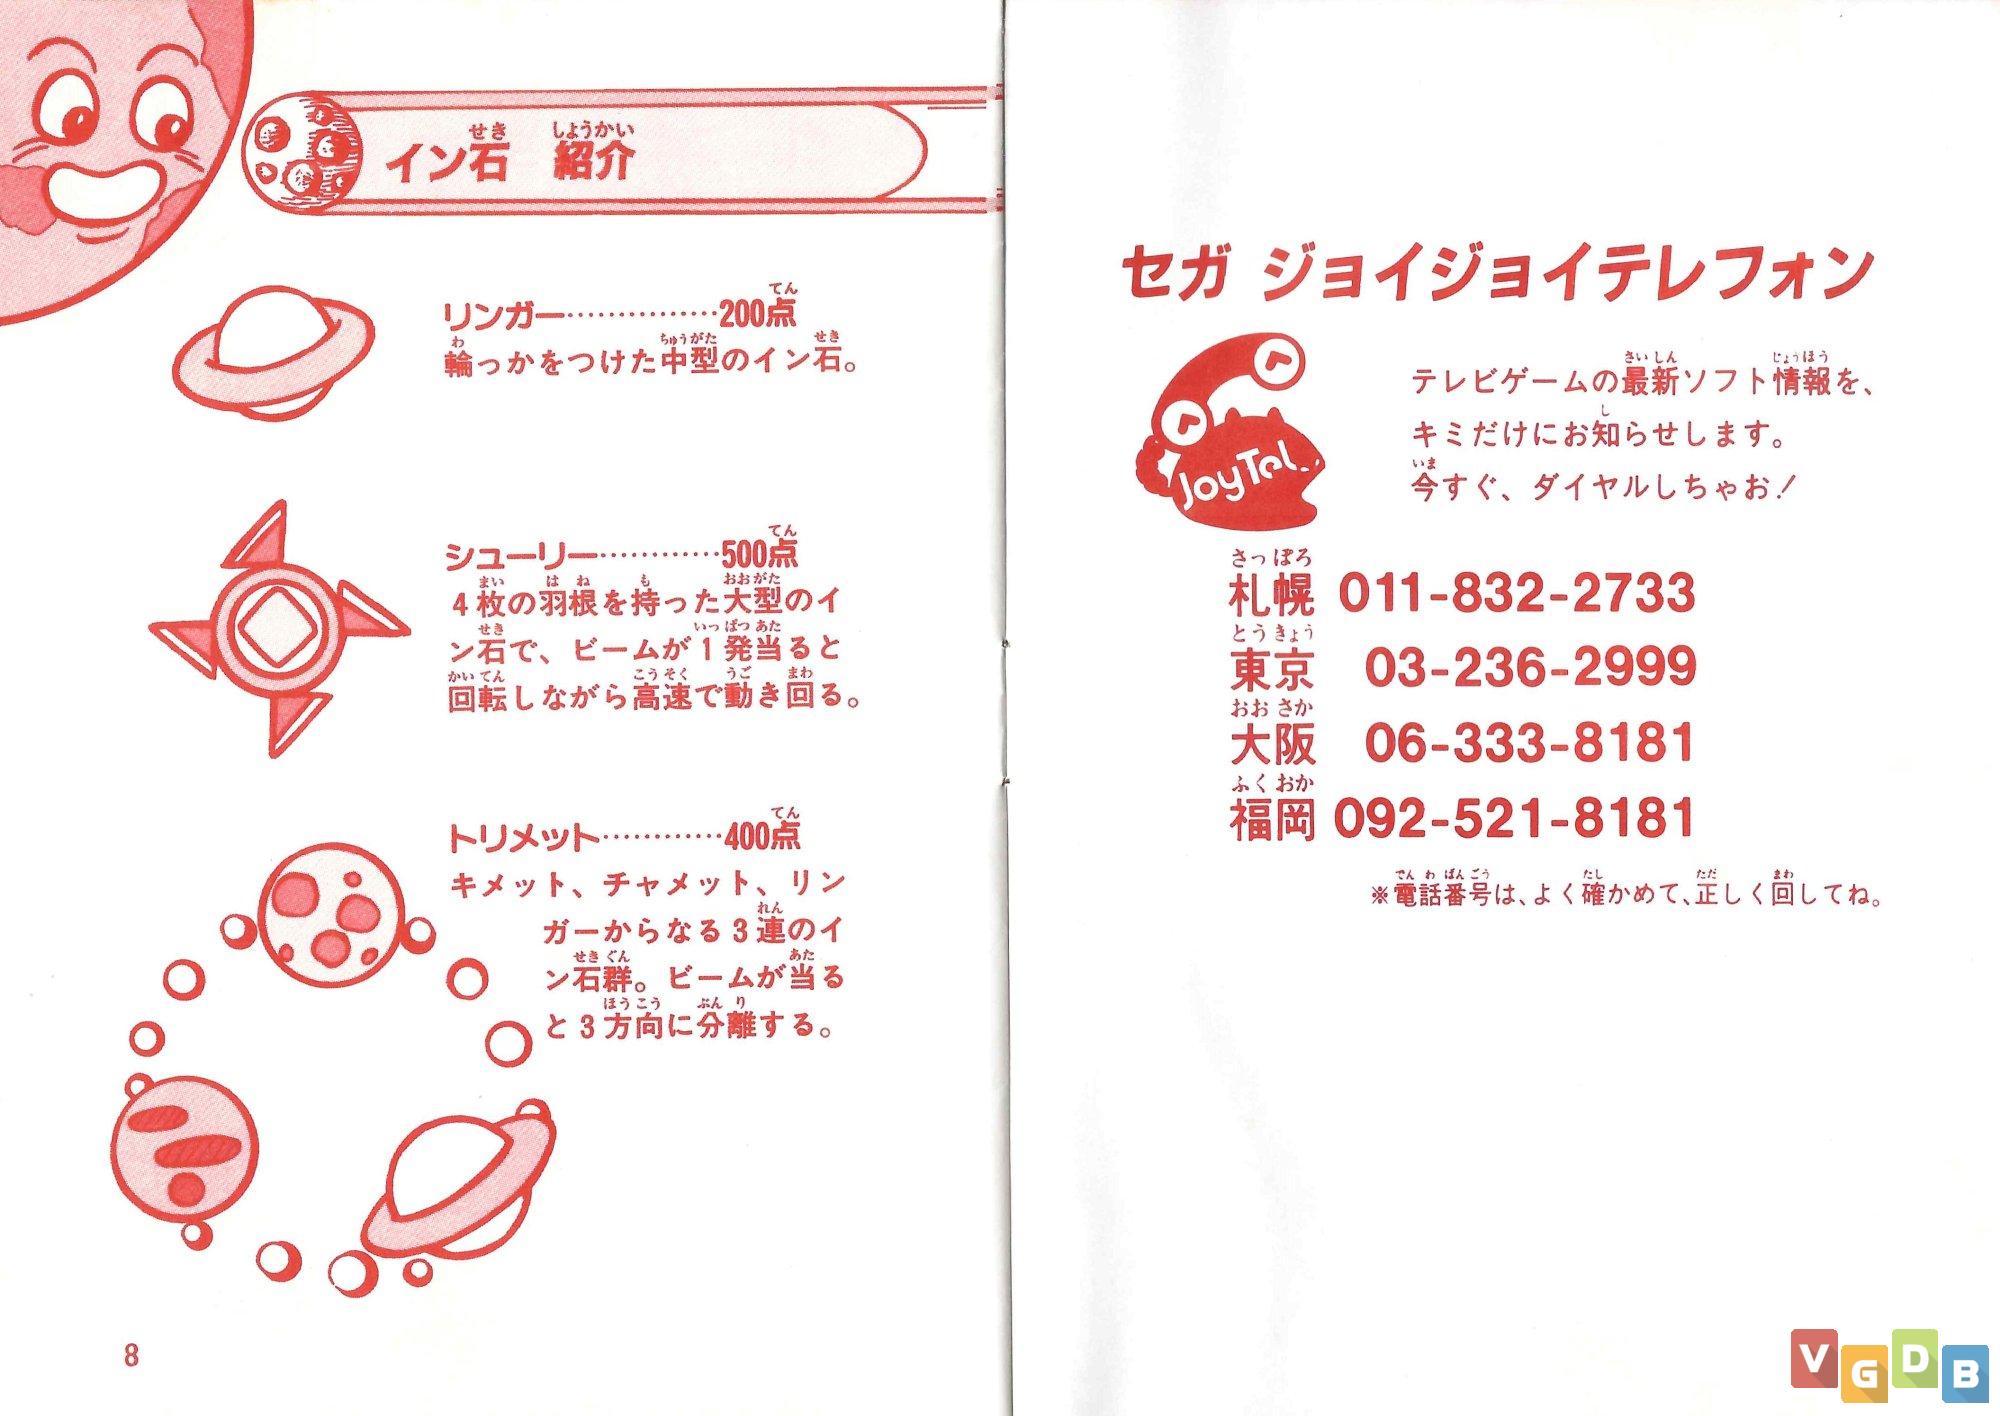 イン石 紹介
リンガー……………200点
輪っかをつけた中型のイン石。
シューリー…………500点
4枚の羽根を持った大型のイ
ン石で、ビームが1発当ると
回転しながら高速で動き回る。
トリメット…………400点
キメット、チャメット、リン
ガーからなる3連のイ
ン石群。ビームが当る
と3方向に分離する。
8
セガ ジョイジョイテレフォン
JoyTel
テレビゲームの最新ソフト情報を、
キミだけにお知らせします。
今すぐ、ダイヤルしちゃお!
札幌 011-832-2733
東京 03-236-2999
大阪 06-333-8181
福岡 092-521-8181
※電話番号は、よく確かめて、正しく回してね。
VGDB